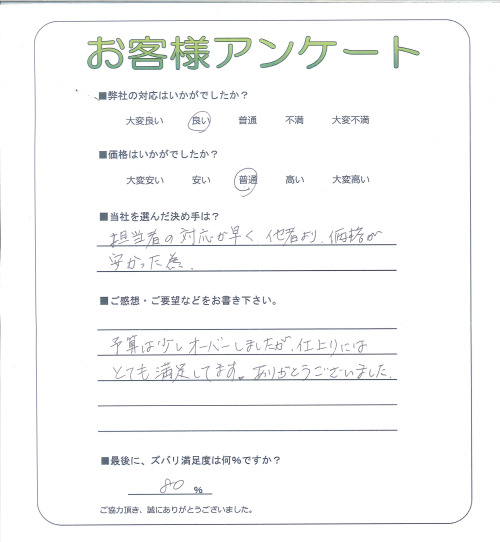 お客様アンケート
■弊社の対応はいかがでしたか？
大変良い 良い 普通 不満 大変不満
■価格はいかがでしたか？
大変安い 安い 普通 高い 大変高い
■当社を選んだ決め手は？
担当者の対応が早く他者より、価格が
安かった為。
■ご感想・ご要望などをお書き下さい。
予算は少しオーバーしましたが、仕上りには
とても満足してます。ありがとうございました。
■最後に、ズバリ満足度は何％ですか？
80 %
ご協力頂き、誠にありがとうございました。